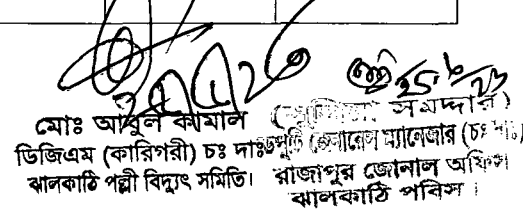 মোঃ আবুল কামাল
ডিজিএম (কারিগরী) চঃ দাঃ
ঝালকাঠি পল্লী বিদ্যুৎ সমিতি।
সমদ্দার)
ডেপুটি জেনারেল ম্যানেজার (চঃ দাঃ)
রাজাপুর জোনাল অফিস
ঝালকাঠি পবিস।